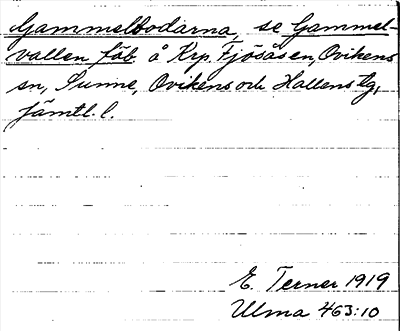 Gammelbodarna, se Gammel-
vallen fäb. å Krp. Fjösåsen, Ovikens
sn, Sunne, Ovikens och Hallens tg,
Jämtl. l.
E. Terner 1919
Ulma 463:10